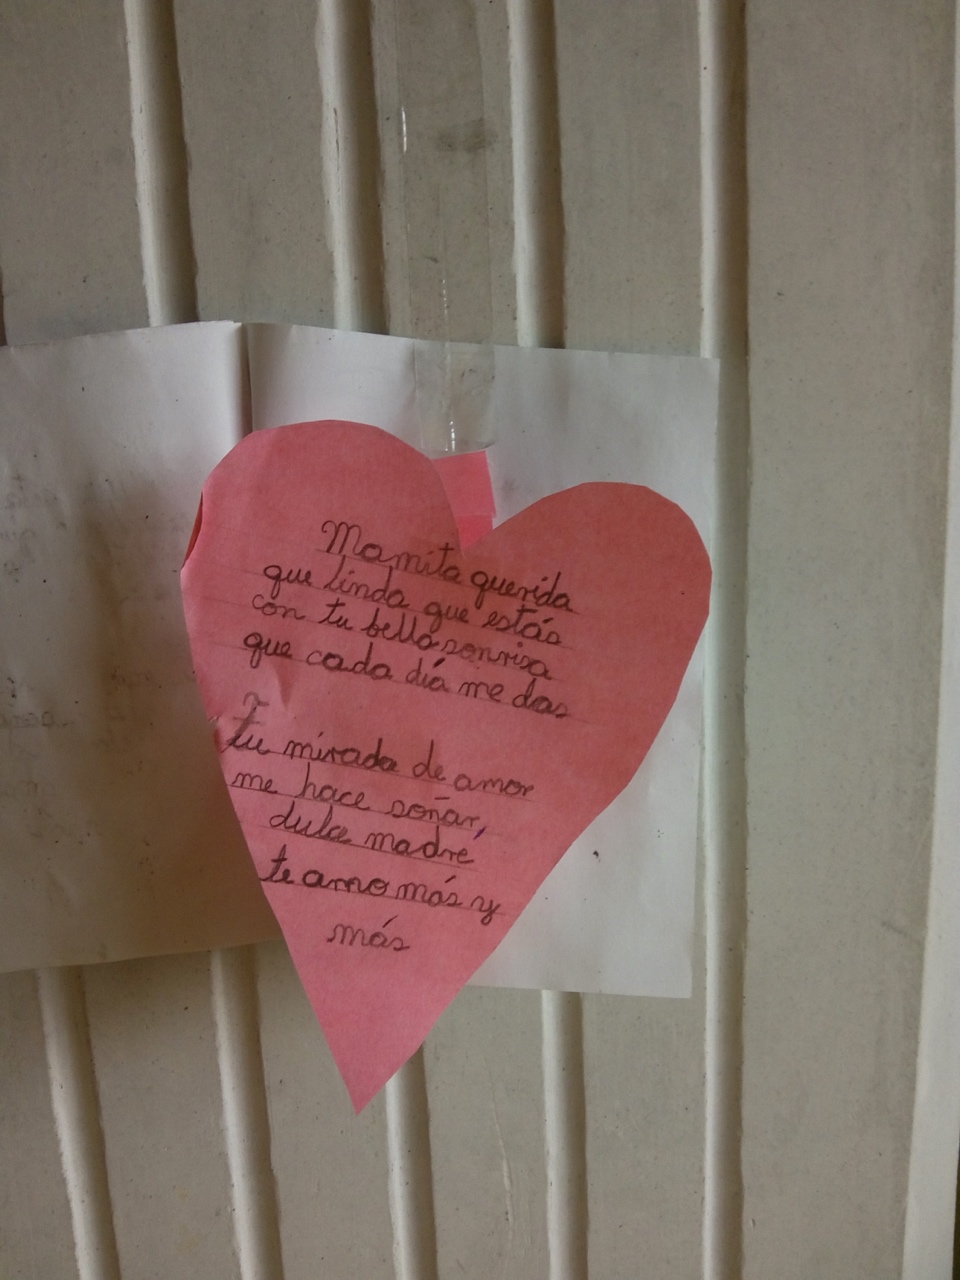 Mamita querida
que linda que estás
con tu bella sonrisa
que cada día me das
Tu mirada de amor
me hace soñar,
dulce madre
te amo más y
más